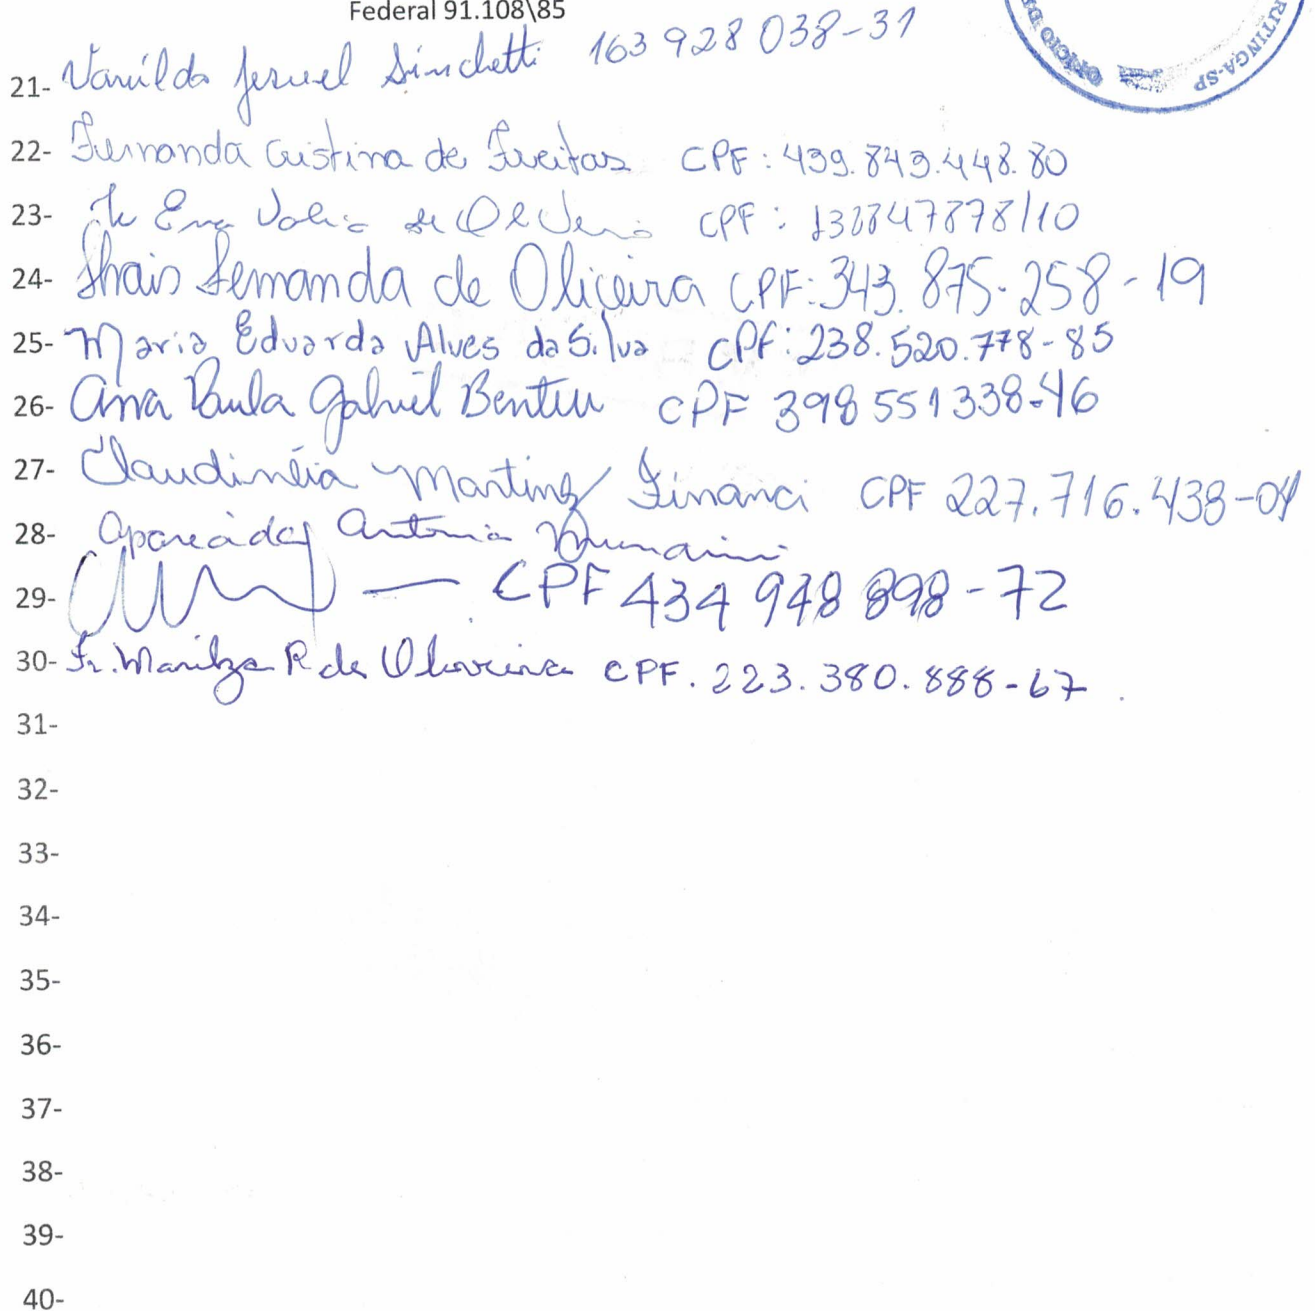 Federal 91.108\85
OFÍCIO DE RITINGA-SP
21- Vanilda Jesuel Sinchetti 163 928 038-31
22- Fernanda Cristina de Freitas CPF: 439.843.448.80
23- Ir Ena de Oliveira CPF: 132847878/10
24- Thais Fernanda de Oliveira CPF: 343.875-258-19
25- Maria Eduarda Alves da Silva CPF: 238.520.778-85
26- Ana Paula Gabriel Benteu CPF 398 551 338-46
27- Claudinéia Martins Financi CPF 227.716.438-04
28- Aparecida Antonia
29- — CPF 434 948 898-72
30- Ir. Marilza R de Oliveira CPF. 223.380.888-67
31-
32-
33-
34-
35-
36-
37-
38-
39-
40-